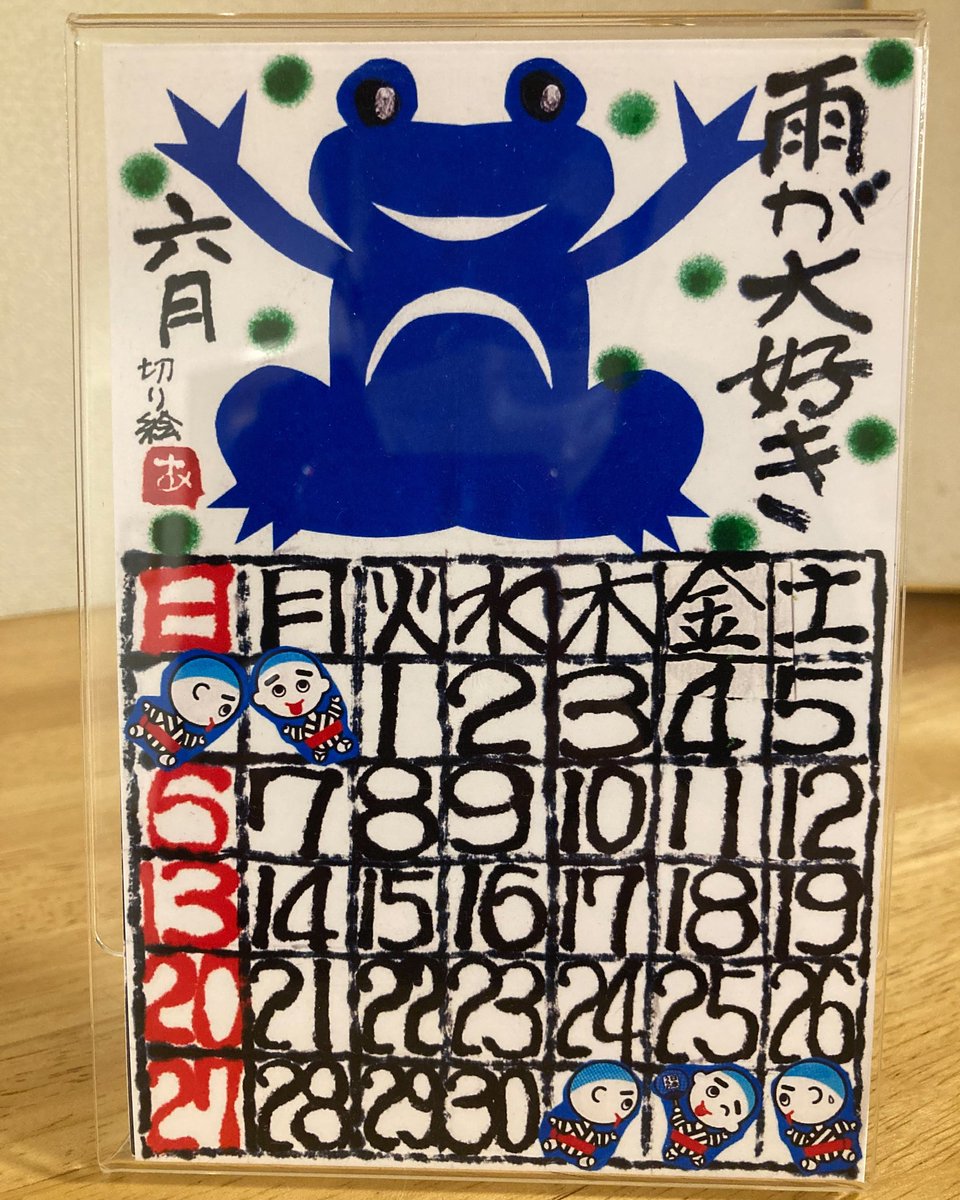 雨が大好き
六月
切り絵
あめ
日 月 火 水 木 金 土
1 2 3 4 5
6 7 8 9 10 11 12
13 14 15 16 17 18 19
20 21 22 23 24 25 26
27 28 29 30